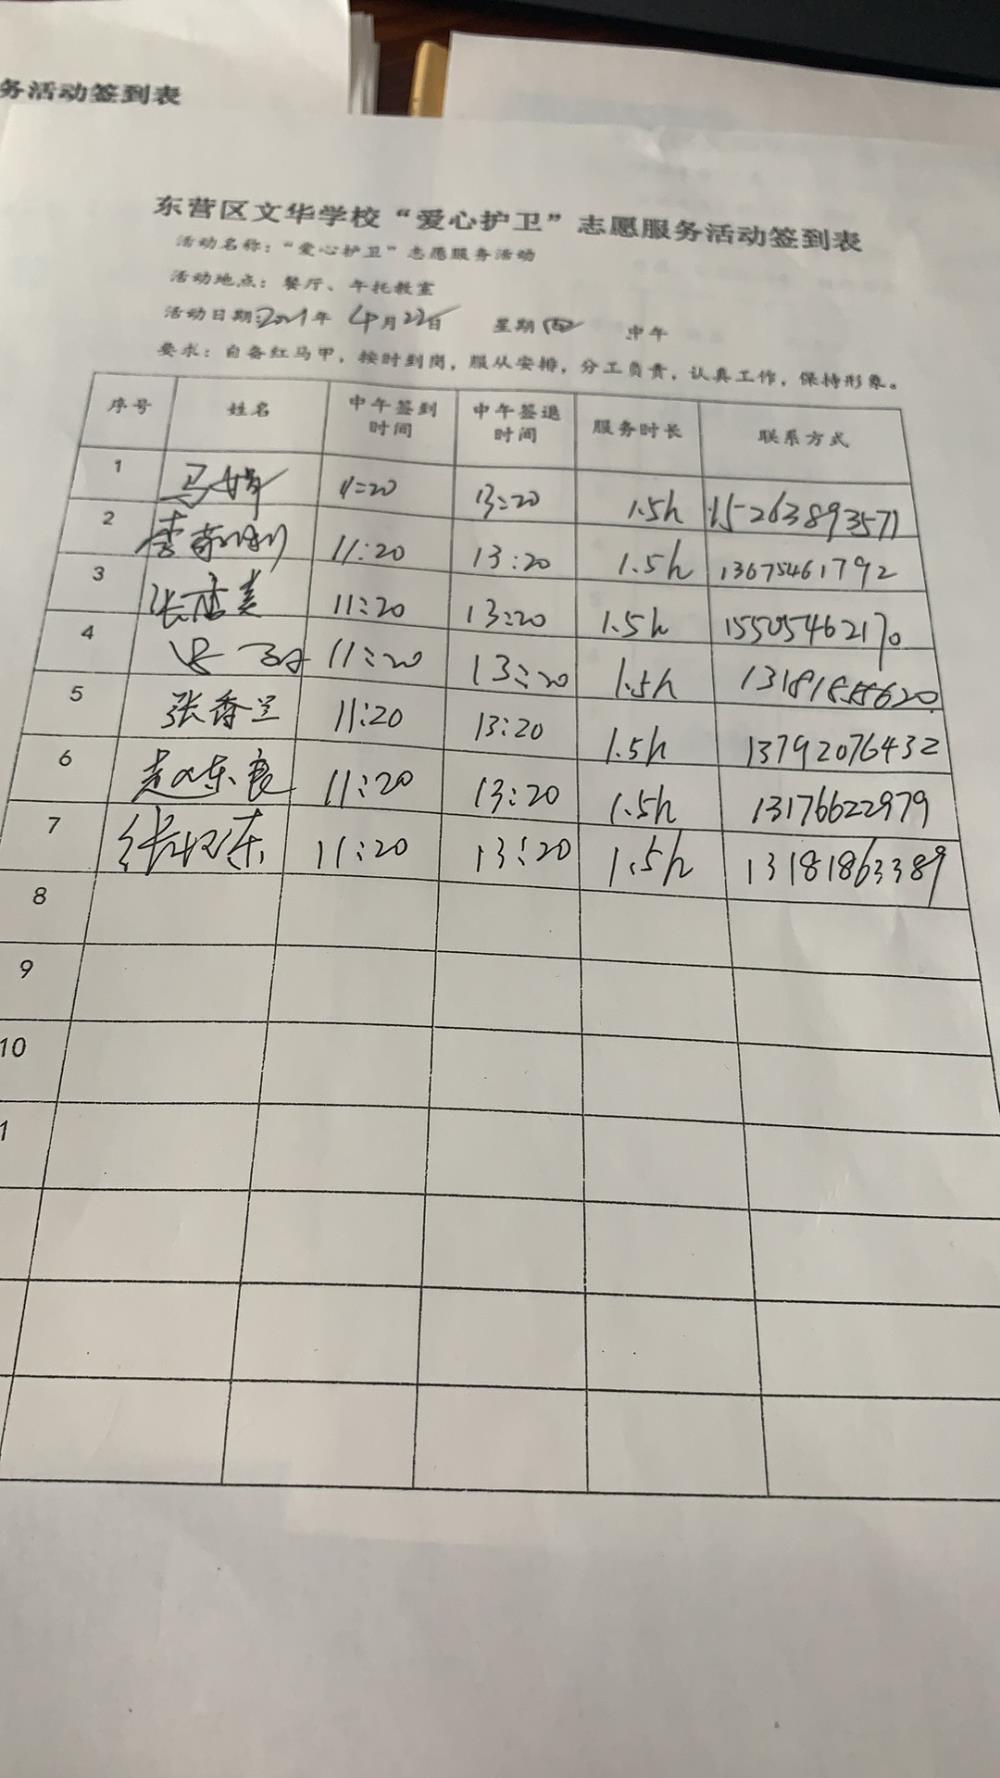 务活动签到表
东营区文华学校“爱心护卫”志愿服务活动签到表
活动名称：“爱心护卫”志愿服务活动
活动地点：餐厅、午托教室
活动日期:2021年 4月22日 星期四 中午
要求：自备红马甲，按时到岗，服从安排，分工负责，认真工作，保持形象。
序号 姓名 中午签到时间 中午签退时间 服务时长 联系方式
1 马婧 11:20 13:20 1.5h 15263893571
2 11:20 13:20 1.5h 13675461792
3 张 美 11:20 13:20 1.5h 15505462170
4 11:20 13:20 1.5h 13181858620
5 张香兰 11:20 13:20 1.5h 13792076432
6 赵东良 11:20 13:20 1.5h 13176622979
7 东 11:20 13:20 1.5h 13181863389
8
9
10
1